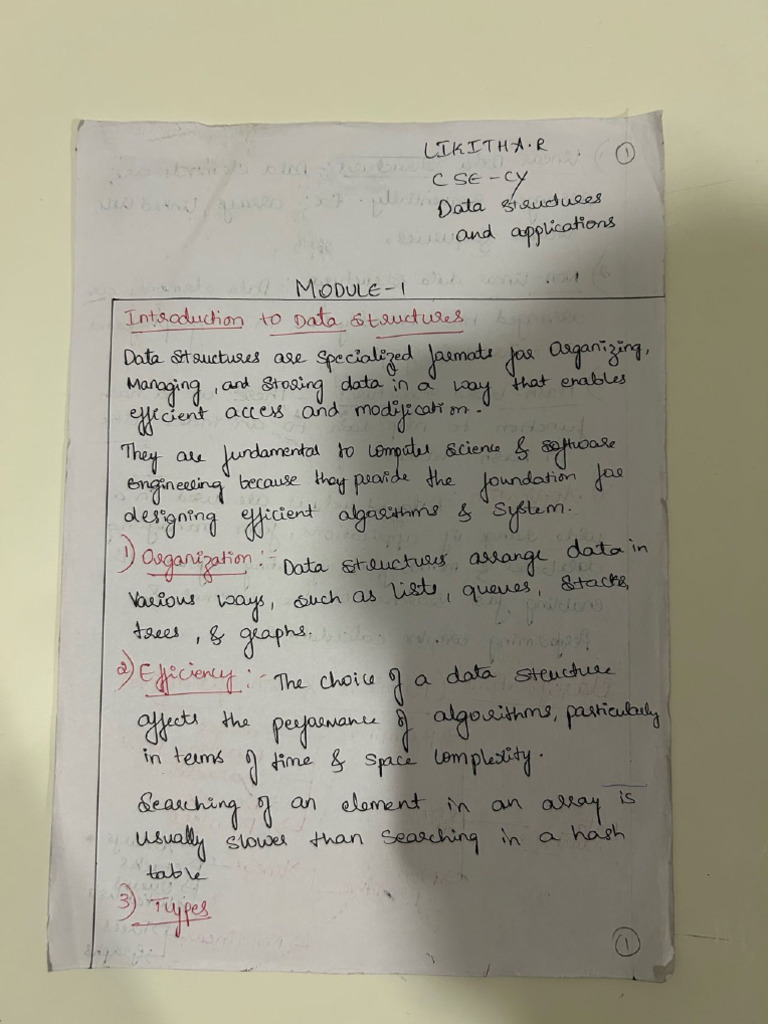 LIKITHA.R
①
CSE-CY
Data Structures
and applications
MODULE-1
Introduction to Data Structures
Data Structures are specialized formats for Organizing,
Managing, and Storing data in a way that enables
efficient access and modification.
They are fundamental to computer science & software
engineering because they provide the foundation for
designing efficient algorithms & system.
1) Organization:- Data structures arrange data in
various ways, such as lists, queues, stacks,
trees, & graphs.
2) Efficiency:- The choice of a data structure
affects the performance of algorithms, particularly
in terms of time & space complexity.
Searching of an element in an array is
usually slower than searching in a hash
table
3) Types
①